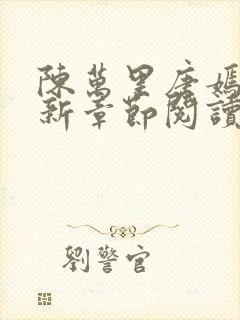 陳萬里唐嫣
新章節閱讀
劉警官